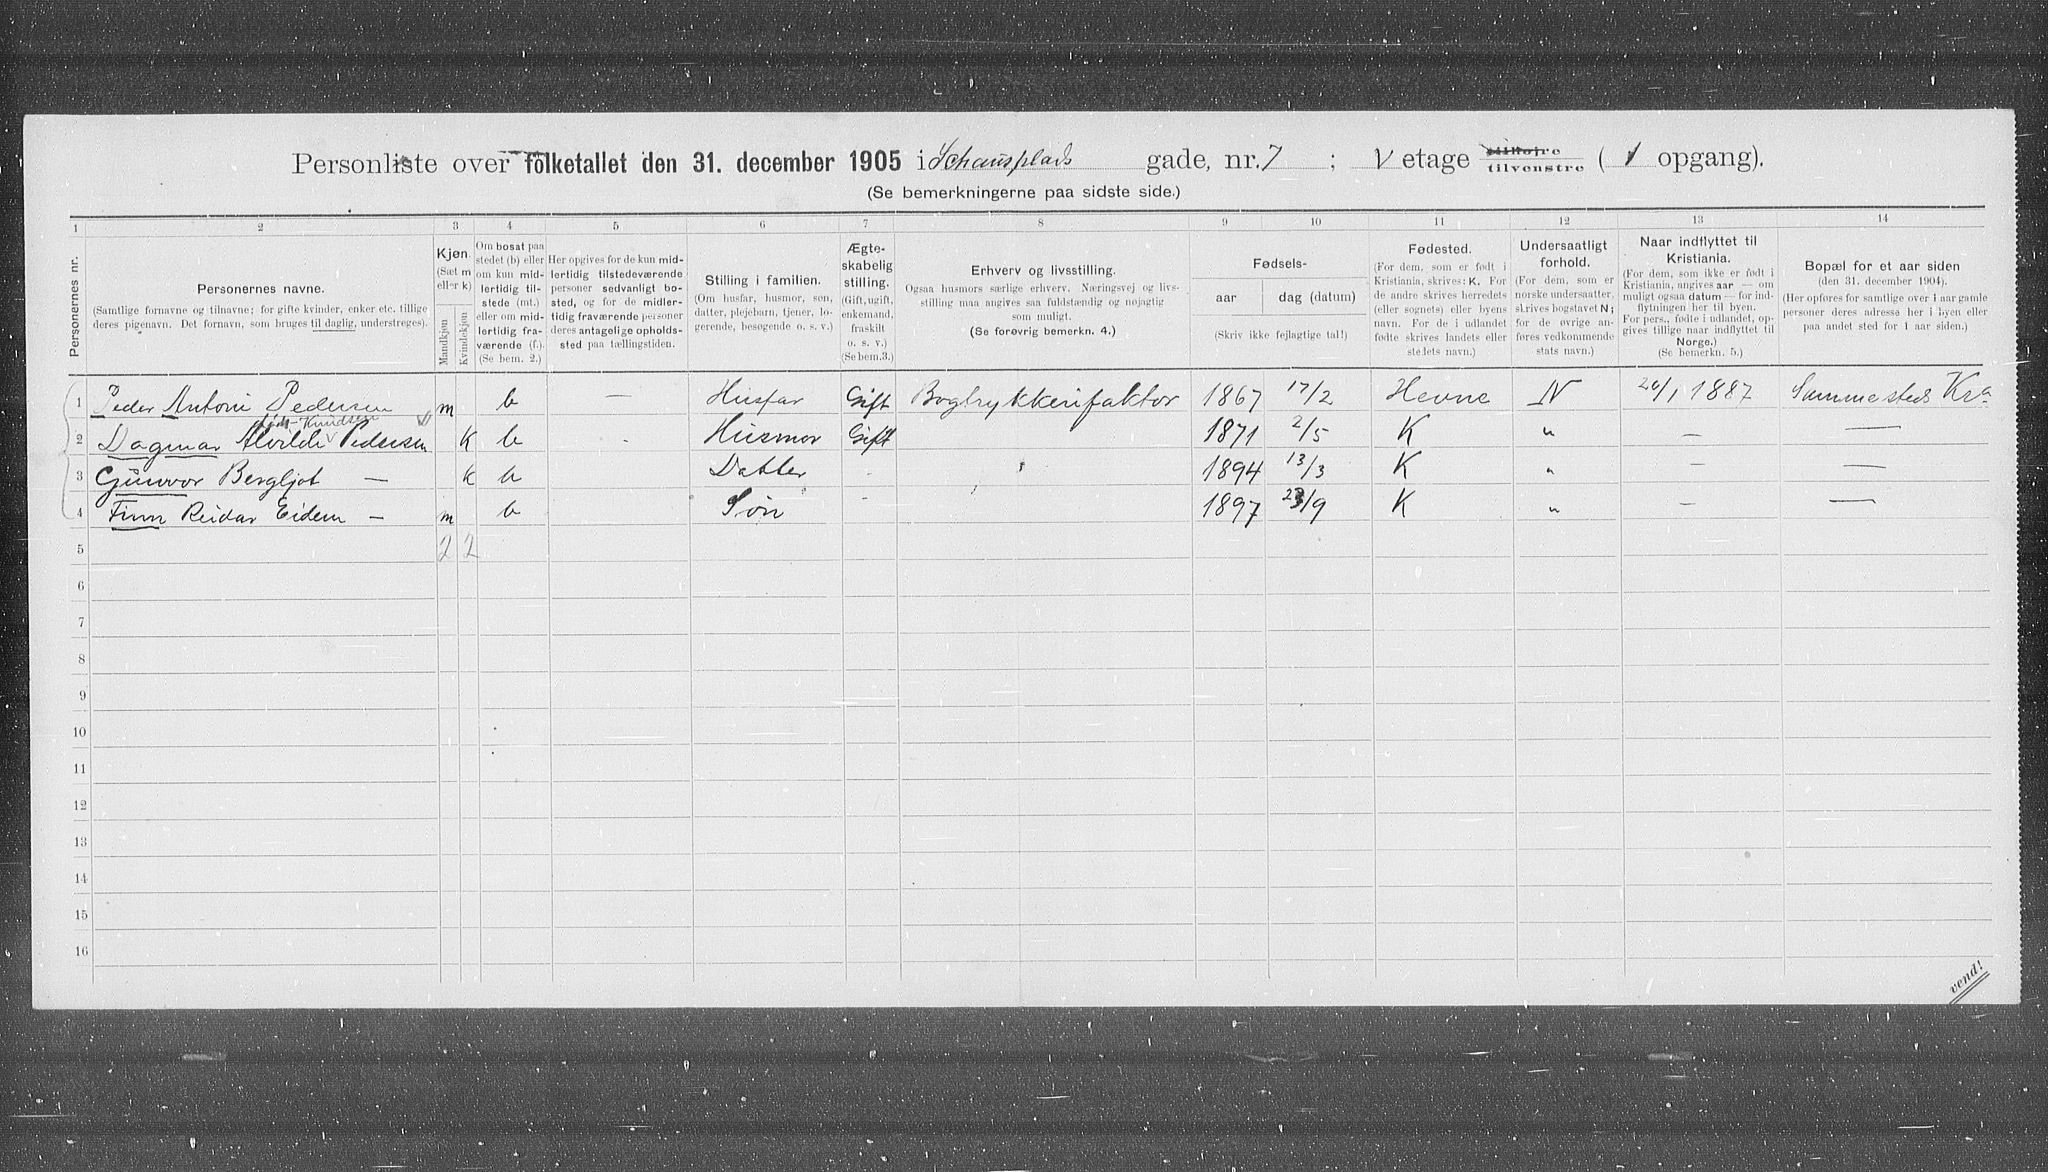 Personliste over folketallet den 31. december 1905 i Schousplads gade, nr. 7 ; V etage tilhøjre tilvenstre ( 1 opgang).
(Se bemerkningerne paa sidste side.)
1 2 3 4 5 6 7 8 9 10 11 12 13 14
Personernes nr.
Personernes navne.
(Samtlige fornavne og tilnavne; for gifte kvinder, enker etc. tillige
deres pigenavn. Det fornavn, som bruges til daglig, understreges).
Kjøn.
(Sæt m
eller k)
Mandkjøn
Kvindekjøn
Om bosat paa
stedet (b) eller
om kun mid-
lertidig til-
stede (mt.)
eller om mid-
lertidig fra-
værende (f.).
(Se bem. 2.)
Her opgives for de kun mid-
lertidig tilstedeværende
personer sedvanligt bo-
sted, og for de midler-
tidig fraværende personer
deres antagelige opholds-
sted paa tællingstiden.
Stilling i familien.
(Om husfar, husmor, søn,
datter, plejebarn, tjener, lo-
gerende, besøgende o. s. v.)
Ægte-
skabelig
stilling.
(Gift, ugift,
enkemand,
fraskilt
o. s. v.)
(Se bem.3.)
Erhverv og livsstilling.
Ogsaa husmors særlige erhverv. Næringsvej og livs-
stilling maa angives saa fuldstændig og nøjagtig
som muligt.
(Se forøvrig bemerkn. 4.)
Fødsels-
aar
dag (datum)
(Skriv ikke fejlagtige tal!)
Fødested.
(For dem, som er født i
Kristiania, skrives: K. For
de andre skrives herredets
(eller sognets) eller byens
navn. For de i udlandet
fødte skrives landets eller
stedets navn.)
Undersaatligt
forhold.
(For dem, som er
norske undersaatter,
skrives bogstavet N;
for de øvrige an-
føres vedkommende
stats navn.)
Naar indflyttet til
Kristiania.
(For dem, som ikke er født i
Kristiania, angives aar — om
muligt ogsaa datum — for ind-
flytningen her til byen.
For pers., fødte i udlandet, op-
gives tillige naar indflyttet til
Norge.)
(Se bemerkn. 5.)
Bopæl for et aar siden
(den 31. december 1904).
(Her opføres for samtlige over 1 aar gamle
personer deres adresse her i byen eller
paa andet sted for 1 aar siden.)
1 Peder Antoni Pedersen m b — Husfar Gift Bogtrykkerifaktor 1867 17/2 Hevne N 20/1 1887 Sammesteds Kra
født Knudsen
2 Dagmar Alvilde Pedersen K b - Husmor Gift 1871 2/5 K " — —
3 Gunvor Bergljot — k b Datter - 1894 13/3 K " — —
4 Finn Reidar Eidem — m b Søn - 1897 23/9 K " — —
5 2 2
6
7
8
9
10
11
12
13
14
15
16
vend!